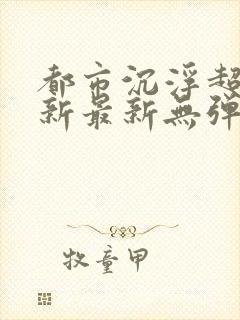 都市沉浮超
新最新無弹
牧童甲